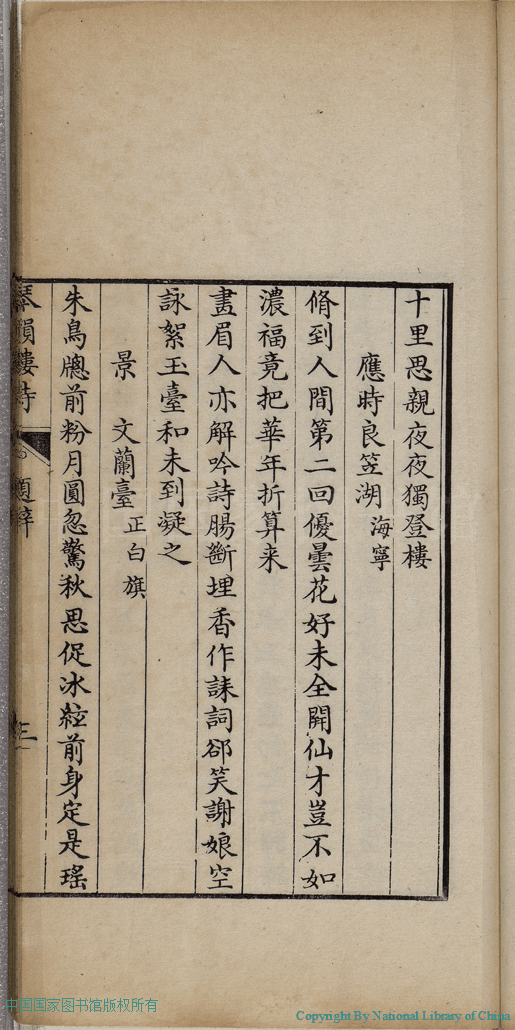 十里思親夜夜獨登樓
應時良笠湖海寧
脩到人間第二回優曇花好未全開仙才豈不如
濃福竟把華年折算来
畫眉人亦解吟詩腸斷埋香作誄詞郤笑謝娘空
詠絮玉臺和未到凝之
景文蘭臺正白旗
朱鳥牕前粉月圓忽驚秋思促冰絃前身定是瑤
琴韻樓詩 題辭 三
中国国家图书馆版权所有
Copyright By National Library of China